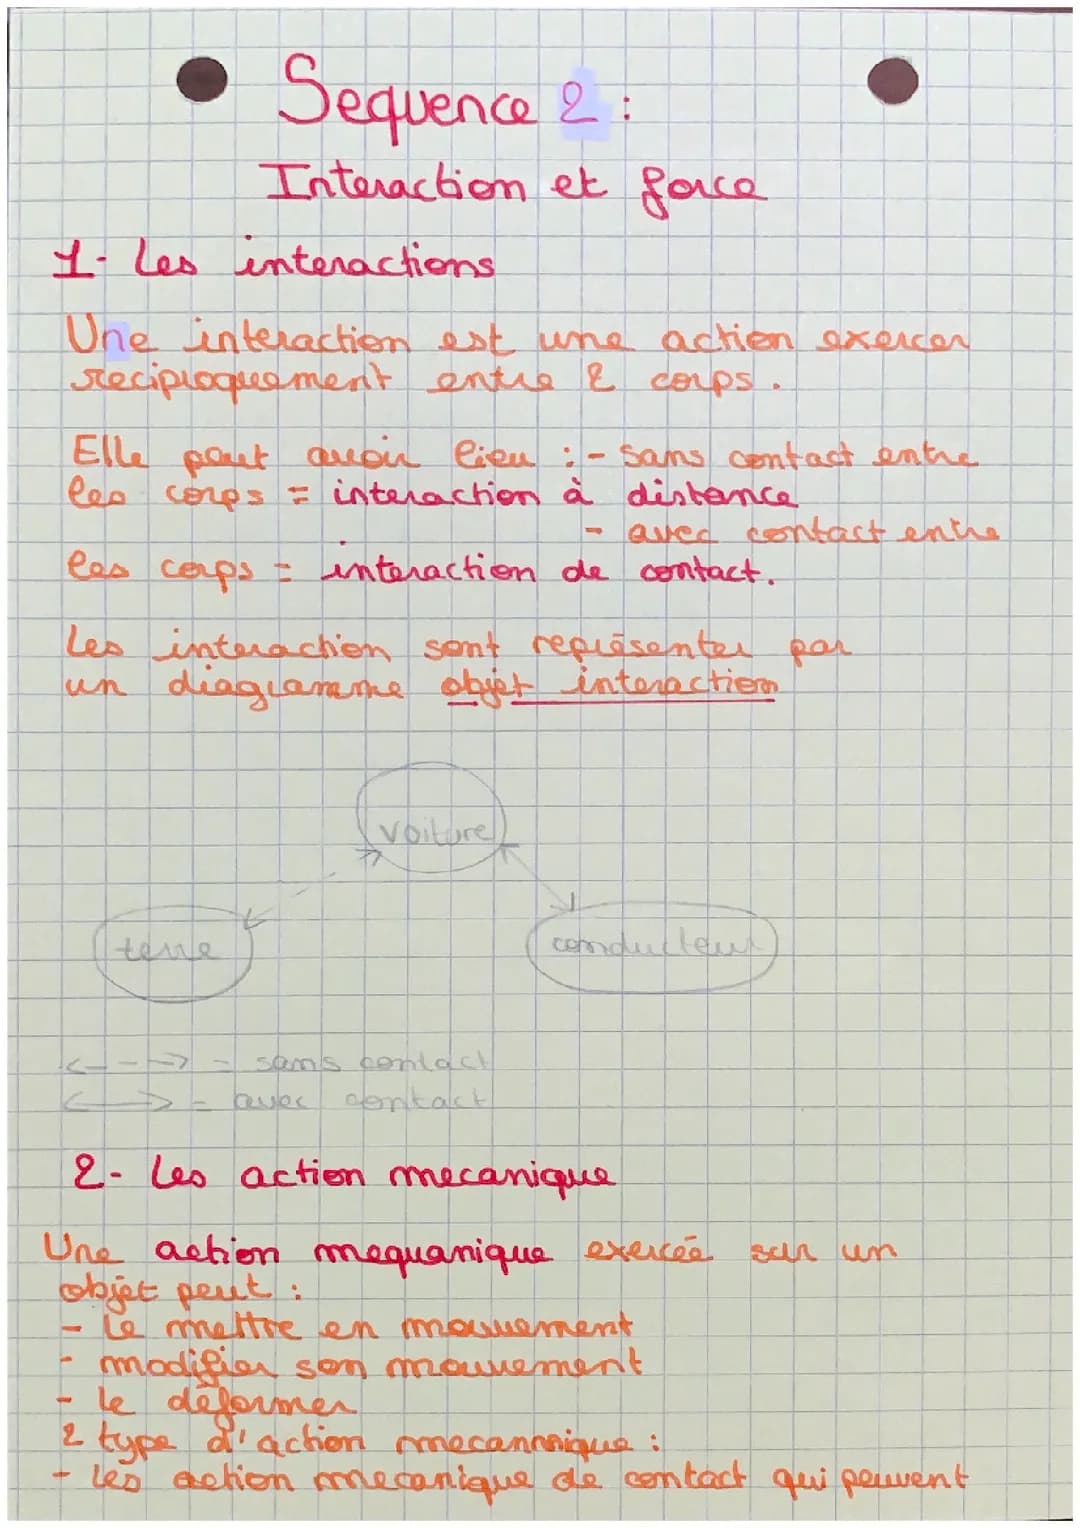 Sequence 2 :
Interaction et force
1- Les interactions
Une interaction est une action exercer
reciproquement entre 2 corps.
Elle peut avoir lieu : - sans contact entre
les corps = interaction à distance
- avec contact entre
les corps = interaction de contact.
Les interaction sont représenter par
un diagramme objet interaction
voiture
terre
conducteur
<---> = sans contact
<—> = avec contact
2- Les action mecanique
Une action mequanique exercée sur un
objet peut :
- Le mettre en mouvement
- modifier son mouvement
- le déformer
2 type d'action mecannique :
- Les action mecanique de contact qui peuvent